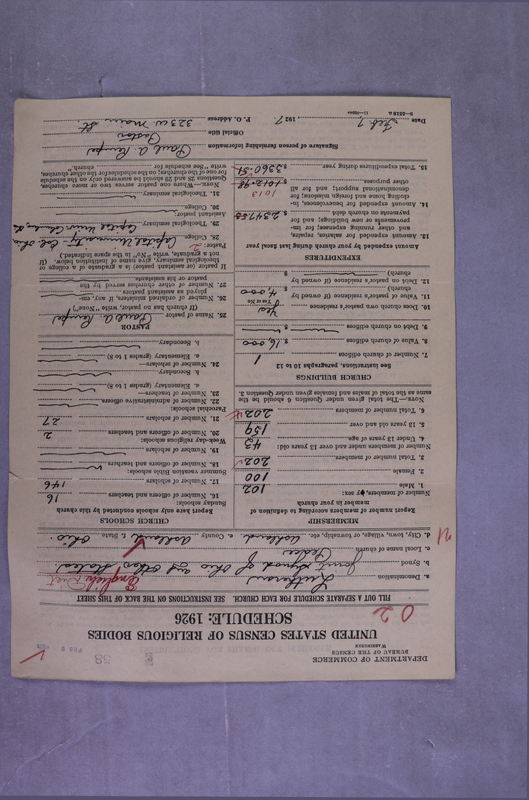 DEPARTMENT OF COMMERCE
BUREAU OF THE CENSUS
WASHINGTON
58
FEB 9
UNITED STATES CENSUS OF RELIGIOUS BODIES
SCHEDULE: 1926
02
FILL OUT A SEPARATE SCHEDULE FOR EACH CHURCH. SEE INSTRUCTIONS ON THE BACK OF THIS SHEET
a. Denomination Lutheran
b. Synod Joint Synod of Ohio and Other States
c. Local name of church
d. City, town, village, or township, etc. Ashland e. County Ashland f. State Ohio
MEMBERSHIP
Report number of members according to condition of
membership in your church
Number of members, by sex:
1. Male 102
2. Female 100
3. Total number of members 202
Number of members under and over 13 years old:
4. Under 13 years of age 43
5. 13 years old and over 159
6. Total number of members 202
NOTE.—The total given under Question 6 should be the
same as the total of males and females given under Question 3.
CHURCH BUILDINGS
See Instructions, paragraphs 10 to 12
7. Number of church edifices 1
8. Value of church edifices $ 16,000
9. Debt on church edifices $
10. Does church own pastor's residence Yes
(Yes or No)
11. Value of pastor's residence (if owned by
church) $ 4,000
12. Debt on pastor's residence (if owned by
church) $
EXPENDITURES
Amount expended by your church during last fiscal year
13. Amount expended for salaries, repairs,
and other running expenses; for im-
provements or new building; and for
payments on church debt $ 2347.53
14. Amount expended for benevolences, in-
cluding home and foreign missions; for
denominational support; and for all
other purposes $ 1012.98
1013
15. Total expenditures during year $ 3360.51
CHURCH SCHOOLS
Report here only schools conducted by this church
Sunday schools:
16. Number of officers and teachers 16
17. Number of scholars 146
Summer vacation Bible schools:
18. Number of officers and teachers
19. Number of scholars
Week-day religious schools:
20. Number of officers and teachers 2
21. Number of scholars 27
Parochial schools:
22. Number of administrative officers
23. Number of teachers—
a. Elementary (grades 1 to 8)
b. Secondary
24. Number of scholars—
a. Elementary (grades 1 to 8)
b. Secondary
PASTOR
25. Name of pastor Paul A. Rempe
(If church has no pastor, write "None")
26. Number of ordained ministers, if any, em-
ployed as assistant pastors
27. Number of other churches served by the
pastor or his assistants
If pastor (or assistant pastor) is a graduate of a college or
theological seminary, give name of institution below. (If
not a graduate, write "No" in the space indicated.)
Pastor: 2
28. College Capital University
29. Theological seminary Capital
Assistant pastor:
30. College
31. Theological seminary
NOTE.—Where one pastor serves two or more churches,
Questions 25 and 29 should be answered only on the schedule
for one of the churches; on the schedules for the other churches,
write "See schedule for church."
Signature of person furnishing information Paul A. Rempe
Official title Pastor
Date Feb 7, 1927. P. O. Address 323 W. Main St.